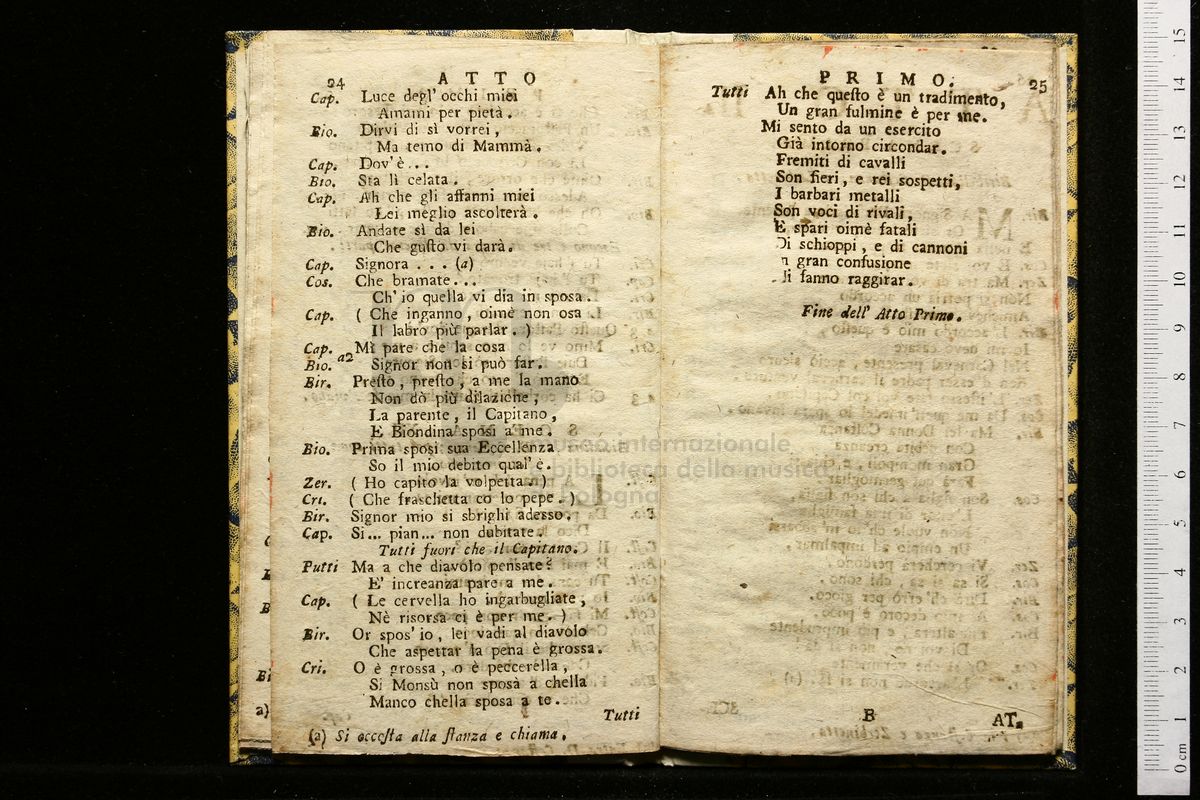 24 ATTO
Cap. Luce degl' occhi miei
Amami per pietà.
Bio. Dirvi di sì vorrei,
Ma temo di Mammà.
Cap. Dov'è...
Bio. Sta lì celata.
Cap. Ah che gli affanni miei
Lei meglio ascolterà.
Bio. Andate sì da lei
Che gusto vi darà.
Cap. Signora ... (a)
Cos. Che bramate...
Ch' io quella vi dia in sposa.
Cap. ( Che inganno, oimè non osa
Il labro più parlar. )
Cap. Mi pare che la cosa
Bio. a2 Signor non si può far.
Bir. Presto, presto, a me la mano
Non dò più dilazione;
La parente, il Capitano,
E Biondina sposi a me.
Bio. Prima sposi sua Eccellenza
So il mio debito qual' è.
Zer. ( Ho capito la volpetta. )
Cri. ( Che fraschetta co lo pepe. )
Bir. Signor mio si sbrighi adesso.
Cap. Si... pian... non dubitate.
Tutti fuori che il Capitano.
Putti Ma a che diavolo pensate?
E' increanza pare a me.
Cap. ( Le cervella ho ingarbugliate,
Nè risorsa ci è per me. )
Bir. Or spos' io, lei vadi al diavolo
Che aspettar la pena è grossa.
Cri. O è grossa, o è peccerella,
Si Monsù non sposa a chella
Manco chella sposa a te.
Tutti
(a) Si accosta alla stanza e chiama.
PRIMO. 25
Tutti Ah che questo è un tradimento,
Un gran fulmine è per me.
Mi sento da un esercito
Già intorno circondar.
Fremiti di cavalli
Son fieri, e rei sospetti,
I barbari metalli
Son voci di rivali,
E spari oimè fatali
Di schioppi, e di cannoni
n gran confusione
li fanno raggirar.
Fine dell' Atto Primo.
B AT-
museo internazionale
biblioteca della musica
bologna
0 cm 1 2 3 4 5 6 7 8 9 10 11 12 13 14 15